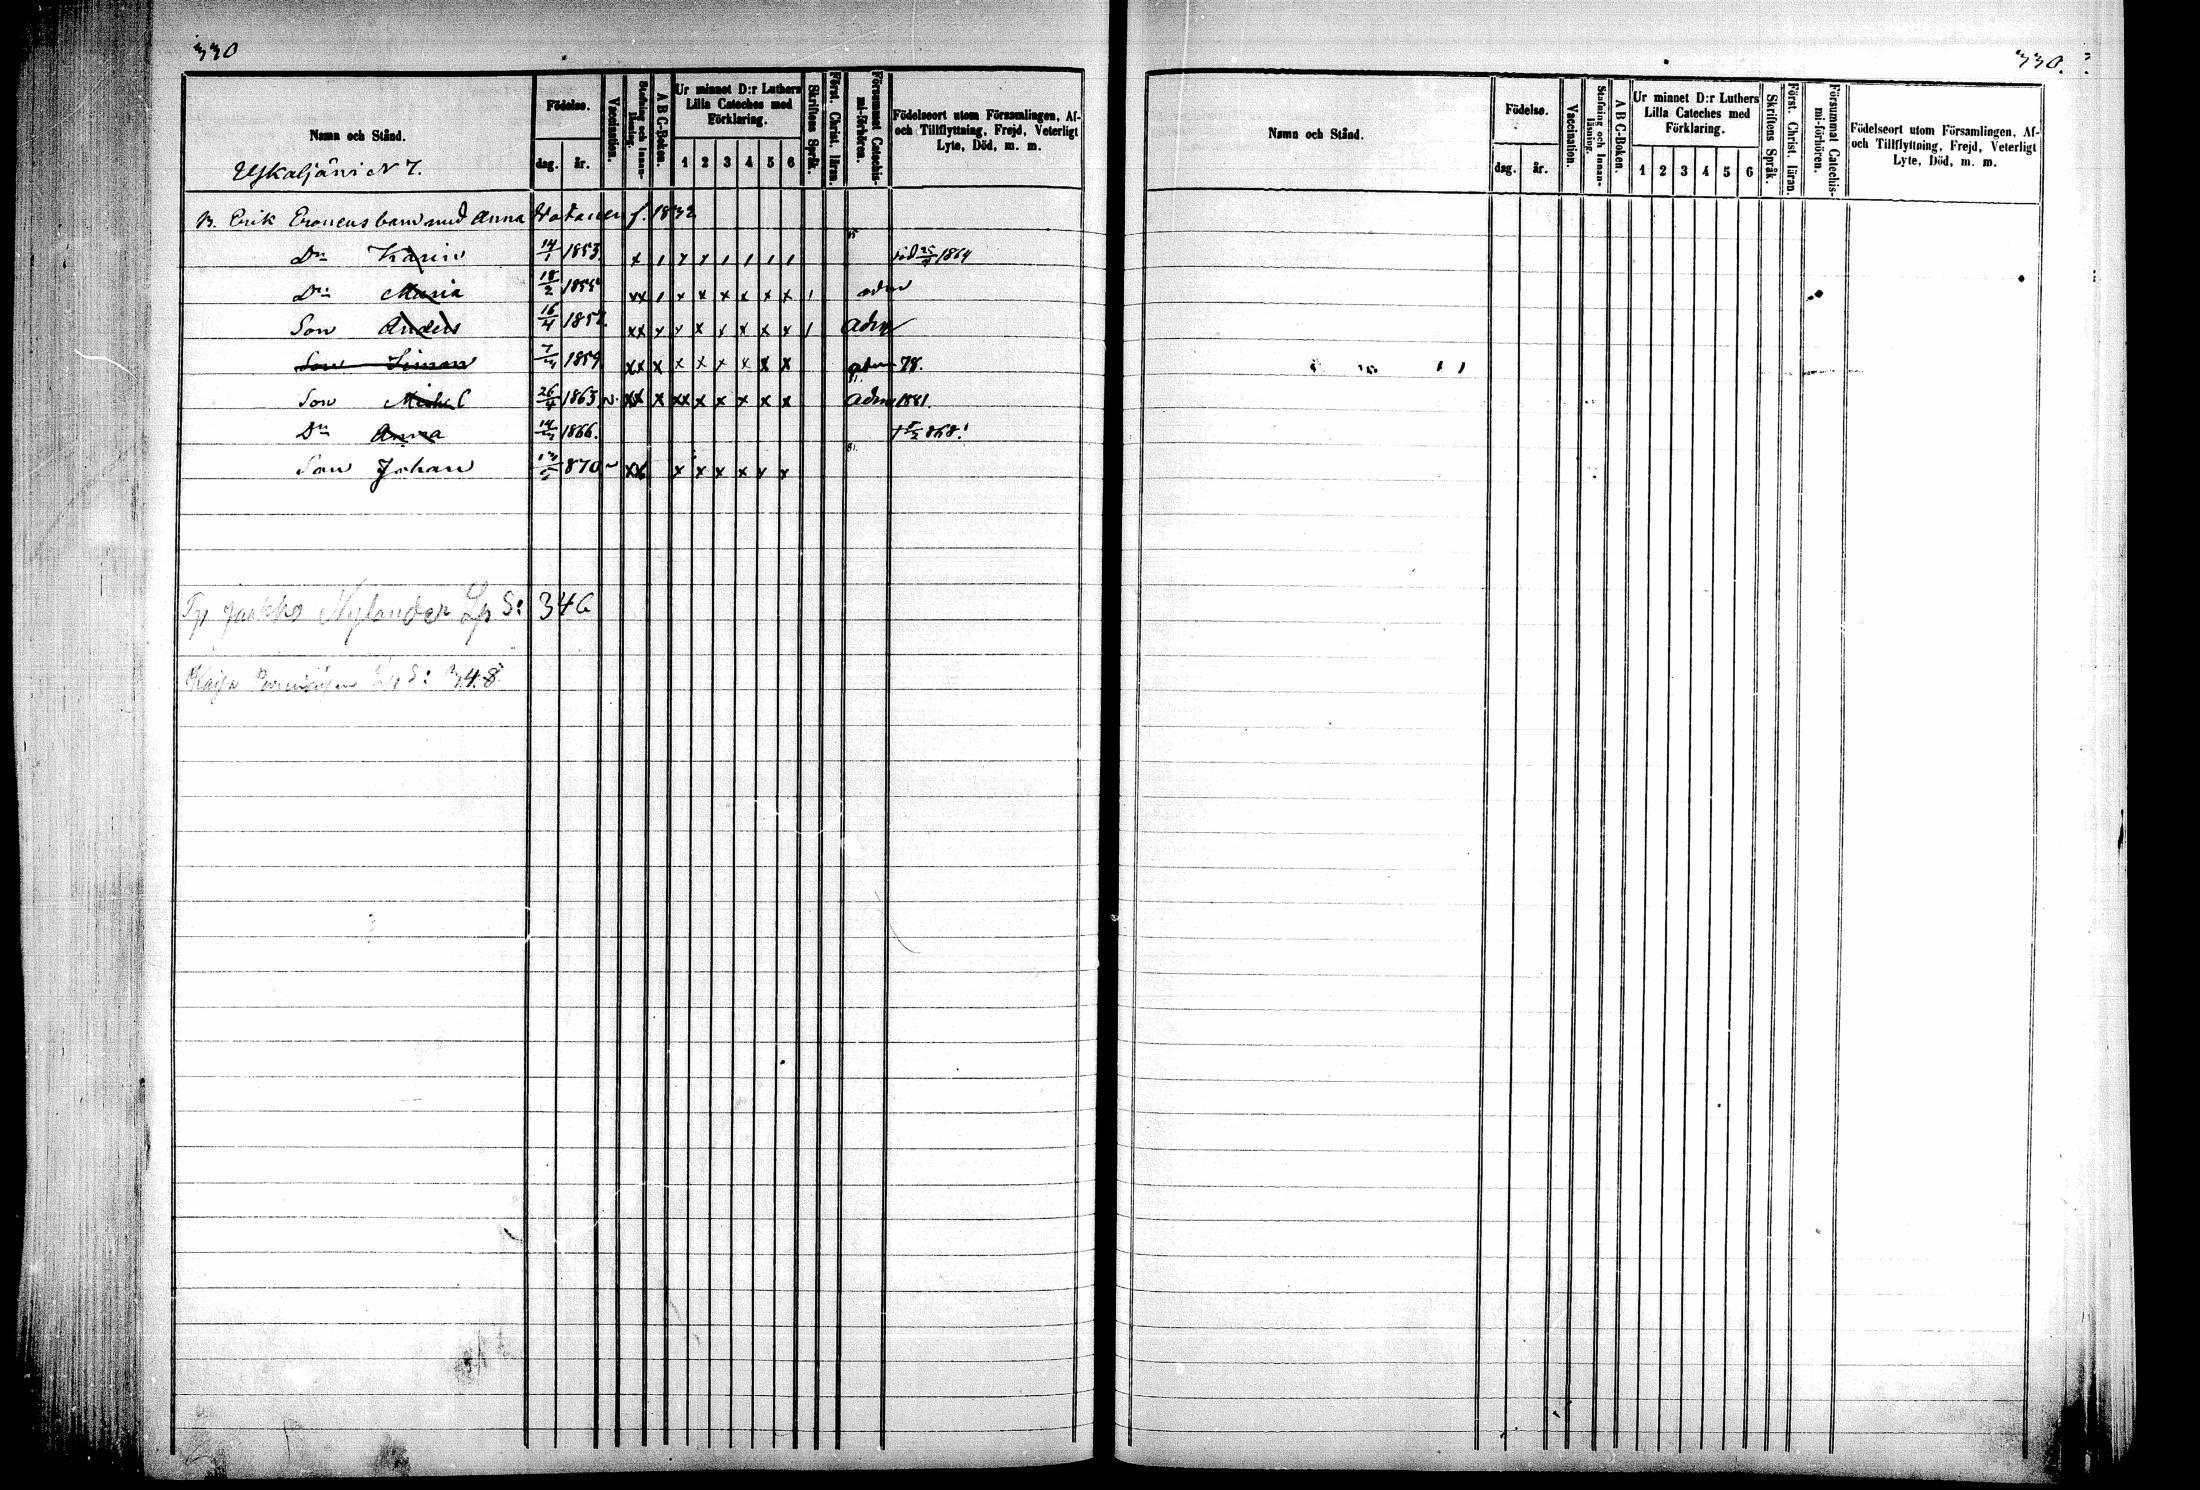 330
Namn och Stånd.
Födelse.
dag. år.
Vaccination.
Stafning och Innanläsning.
A B C-Boken.
Ur minnet D:r Luthers Lilla Cateches med Förklaring.
1 2 3 4 5 6
Skriftens Språk.
Först. Christ. läran.
Försummat Catechismi-förhören.
Födelseort utom Församlingen, Af- och Tillflyttning, Frejd, Veterligt Lyte, Död, m. m.
N 7.
B. Erik Eronens barn med Anna f. 1832
Dr Karin 14/1 1853. x 1864
Dr: Maria 18/2 1855 xx x x x x x x adm
Son Anders 16/4 1857. xx x x x x x x adm
Son Simon 1859 xx x x x x x x x adm 78.
Son Michel 26/4 1863 v. xx x xx x x x x x adm 1881.
Dr Anna 1866. † 868.
Son Johan 870 xx x x x x x x 81.
Jaakko Nylander Lp S: 346
Kaija Lp S: 348
330.
Namn och Stånd.
Födelse.
dag. år.
Vaccination.
Stafning och Innanläsning.
A B C-Boken.
Ur minnet D:r Luthers Lilla Cateches med Förklaring.
1 2 3 4 5 6
Skriftens Språk.
Först. Christ. läran.
Försummat Catechismi-förhören.
Födelseort utom Församlingen, Af- och Tillflyttning, Frejd, Veterligt Lyte, Död, m. m.